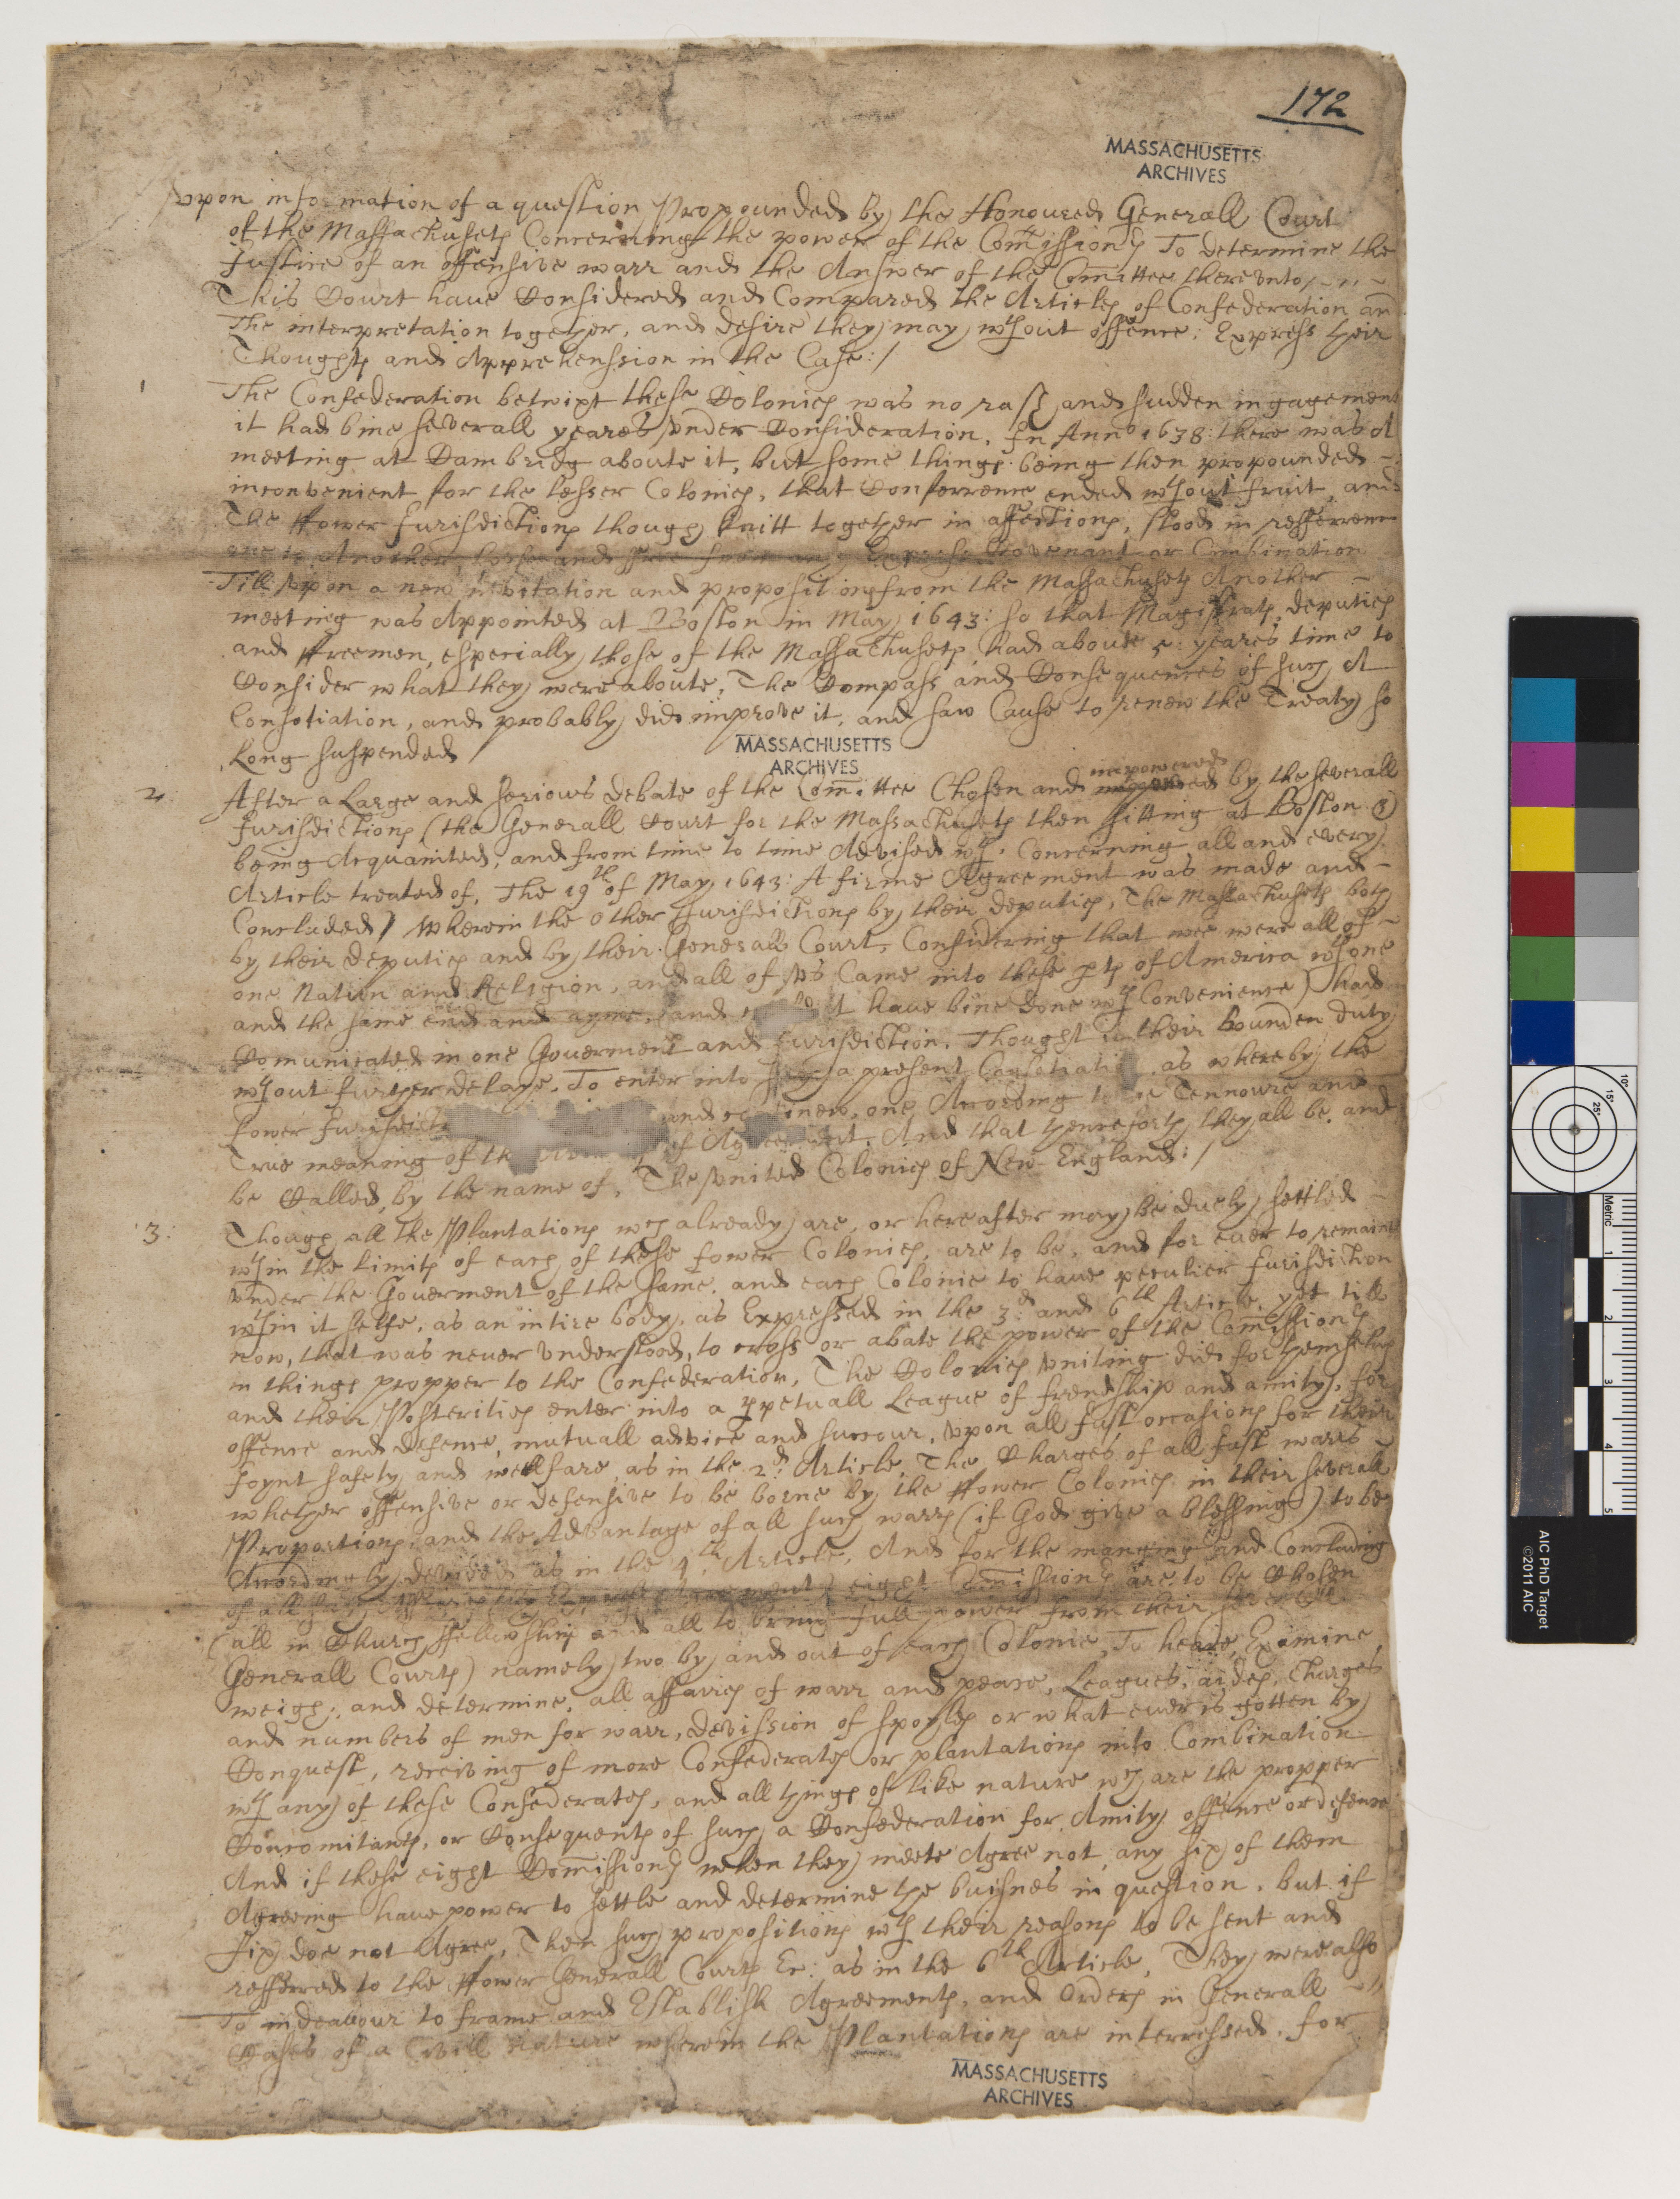 172
MASSACHUSETTS
ARCHIVES
Vpon information of a question Propounded by the Honoured Generall Court
of the Massachusets Concerning the power of the Comission.rs To determine the
Justice of an offensive warr and the Answer of the Comittee therevnto
This Court haue Considered and Compared the Articles of Confederation an
The interpretation together, and desire they may wthout offence: Express their
Thoughts and Apprehenssion in the Case:/
1
The Confederation betwixt these Colonies was no rash and sudden ingagement
it had bine severall yeares vnder Consideration. In Anno 1638: there was A
meeting at Cambridg aboute it, but some things being then propounded
inconvenient for the lesser Colonies, that Conferrence ended wthout fruit, and
The ffower Jurisdictions though knitt together in affections, stood in refference
one to Another, loose and ffree from any Express Covenant or Combination
Till Vpon a new invitation and propositions from the Massachusets Another
meeting was Appointed at Boston in May 1643: so that Magistrats, deputies
and ffreemen, especially those of the Massachusets had aboute 5: yeares time to
Consider what they were aboute, The Compass and Consequences of such A
Consotiation, and probably did improve it, and saw Cause to renew the Treaty so
Long suspended
MASSACHUSETTS
ARCHIVES
2
impowered
After a Large and serious debate of the Comittee Chosen and by the severall
Jurisdictions (the Generall Court for the Massachusets then sitting at Boston &
being Acquainted, and from time to time Advised wth Concerning all and every
Article treated of, The 19th of May 1643: A firme Agreement was made and
Concluded) Wherein the other Jurisdictions by their deputies, The Massachusets both
by their deputies and by their Generall Court, Considering that wee were all of
one Nation and Religion, and all of vs Came into these pts of America wth one
and the same end and ayme, and t haue bine done wth Convenience) had
Comunicated in one Gouerment and Jurisdiction. Thought it their bounden duty
wthout further delaye, To enter into a present Consotiati as whereby the
fower Jurisdict and new, one, According to Tennoure and
True meaning of th of Ag nt, And that henceforth they all be and
be Called, by the name of, The vnited Colonies of New-England:/
3:
Though all the Plantations wch already are, or hereafter may be duely settled
wthin the Limits of each of these fower Colonies, are to be, and for euer to remaine
vnder the Gouerment of the same, and each Colonie to haue peculier Jurisdiction
wthin it selfe, as an intire body, as Expressed in the 3d: and 6th Article, yet till
now, that was neuer vnderstood, to cross or abate the power of the Comissionrs
in things propper to the Confederation, The Colonies vniting did for themselues
and their Posterities enter into a ppetuall League of frendship and amity, for
offence and defence, mutuall advice and succour, vpon all Just occasions for their
Joynt safety and wellfare, as in the 2d: Article, The Charges of all Just warrs
whether offensive or defensive to be borne by the ffower Colonies in their severall
Proportions, and the Advantage of all such warrs (if God give a blessing) to be
Accordingly devided as in the 4th. Article, And for the and Concluding
of all eight Comissionrs are to be Chosen
(all in Church ffellowship and all to bring full power from their severall
Generall Courts) namely two by and out of each Colonie, To heare Examine
weigh, and determine, all affaires of warr and peace, Leagues, aides, Charges
and numbers of men for warr, devission of spoyles or what euer is gotten by
Conquest, receiving of more Confederates or plantations into Combination
wth any of these Confederates, and all things of like nature wch are the propper
Concomitants, or Consequents of such a Confederation for Amity offence or defence
And if these eight Comissionrs when they meete Agree not any six of them
Agreeing haue power to settle and determine the buisnes in question, but if
six doe not Agree, Then such propositions wth their reasons to be sent and
refferred to the ffower Generall Courts &c: as in the 6th Article, They were also
To indeavour to frame and Establish Agreements, and Orders in Generall
Cases of a Civill Nature wherein the Plantations are interressed, for
MASSACHUSETTS
ARCHIVES
AIC PhD Target
©2011 AIC
Metric
1
2
3
4
5
10°
15°
25°